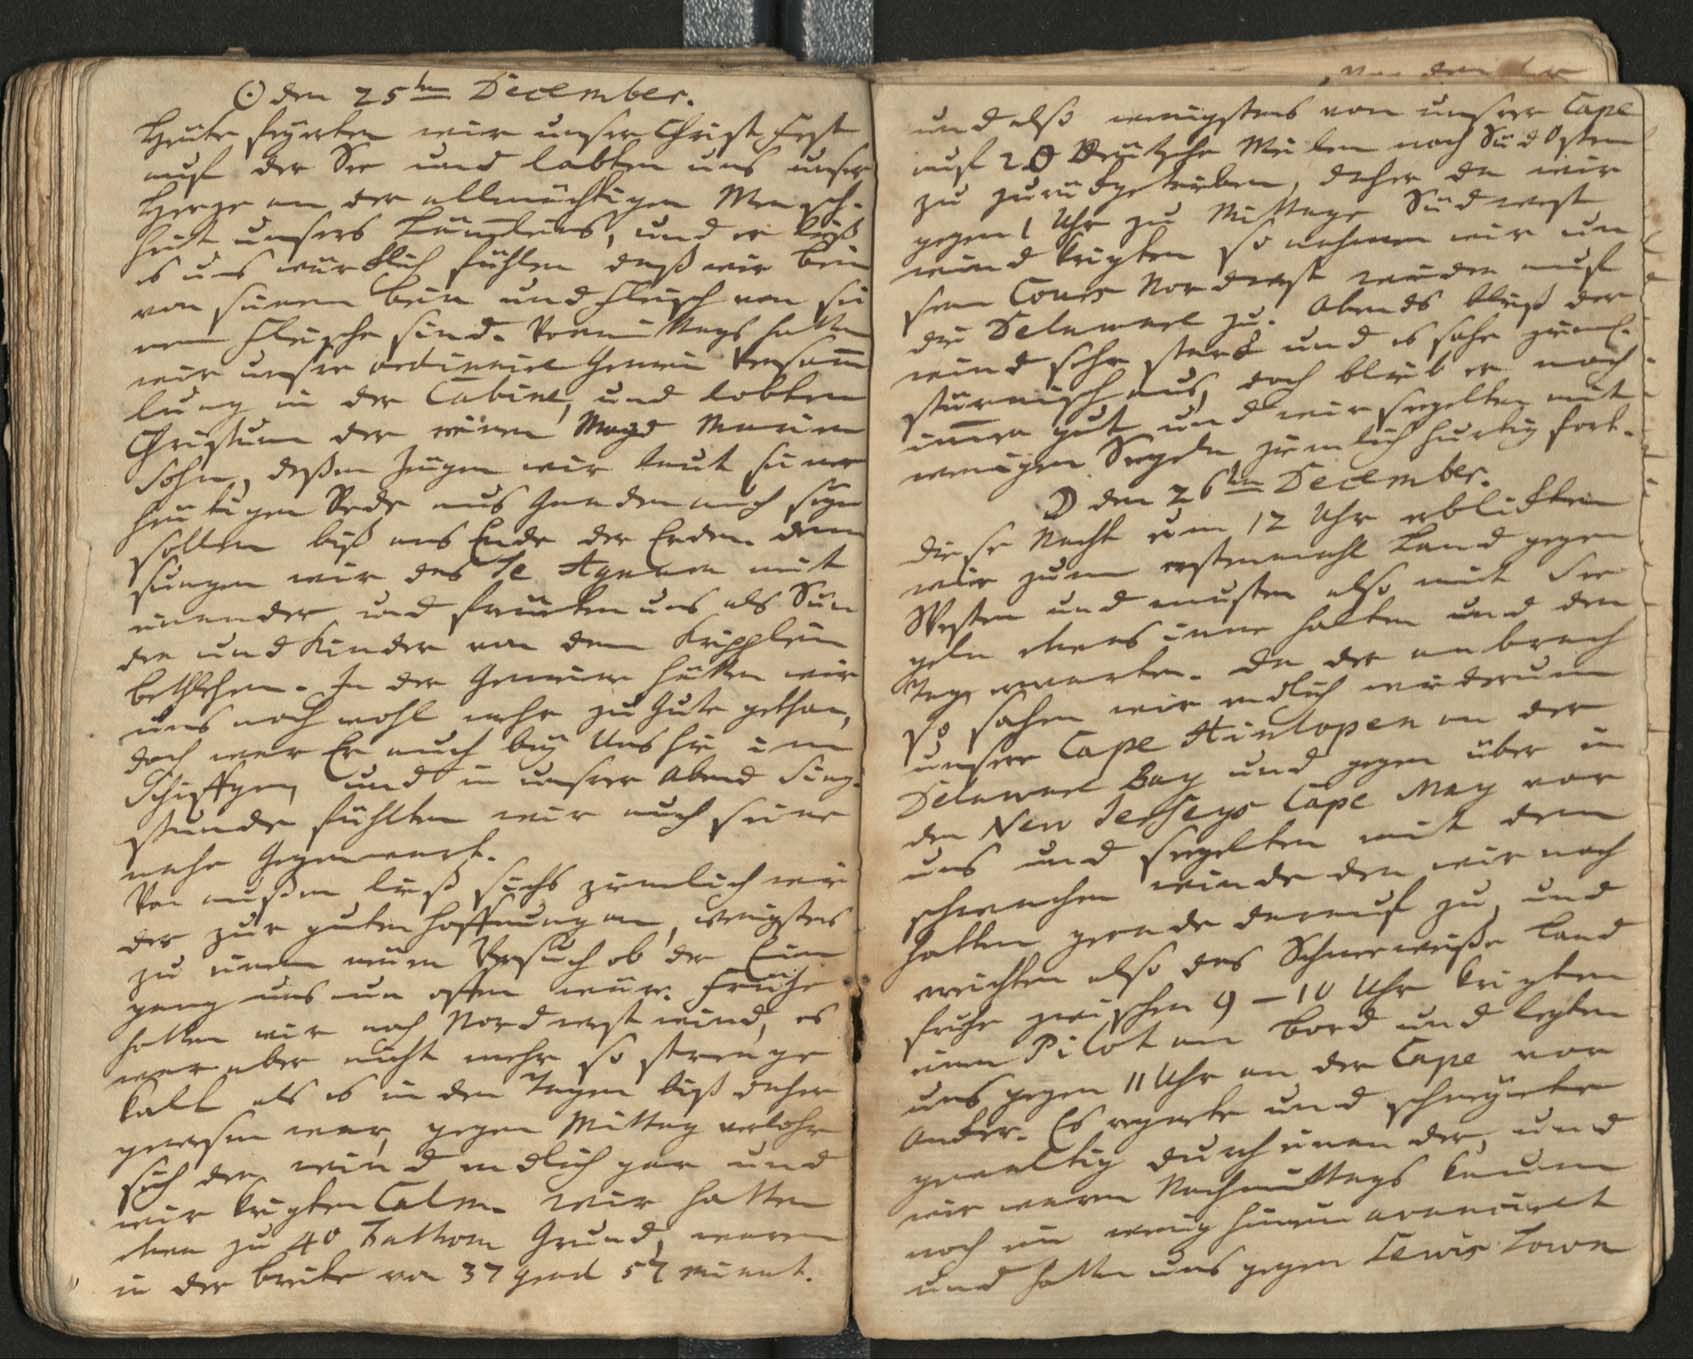 ☉ den 25ten December.
Heute feyerten wir unser Christ Fest
auf der See und labten uns unser
Herze an der allmächtigen Mensch-
heit unsers Lämmleins, und er ließ
es uns würcklich fühlen daß wir Bein
von seinem Bein und Fleisch von sei
nem Fleische sind. Vormittags hatten
wir unsre ordinaire Gemein Versamm
lung in der Cabine, und lobten
Christum der reinen Magd Marien
Sohn, deßen Zeugen wir laut seiner
heutigen Rede aus Gnaden auch seyn
sollen biß ans Ende der Erden. dann
sungen wir das Te Agnum mit
einander und freueten uns als Sün
der und Kinder von dem Kripplein
Bethlehem. In der Gemeine hätten wir
uns noch wohl mehr zu Gute gethan,
doch war Er auch bey Uns hie im
Schiffgen, und in unsrer Abend Sing-
stunde fühlten wir auch seine
nahe Gegenwart.
Von außen ließ sichs ziemlich wie
der zur guten Hoffnung an, wenigstens
zu einem neuen Versuch ob der Ein
gang uns nun offen wär. Frühe
hatten wir noch Nordwestwind, es
war aber nicht mehr so strenge
kalt als es in den Tagen biß daher
gewesen war, gegen Mittag verlohr
sich der wind endlich gar und
wir kriegten Calm. wir hatten
etwa zu 40 Fathom Grund, waren
in der breite von 37 grad 57 minut.
und also wenigstens von unsrer Cape
auf 20 Deutsche Meilen nach Süd Osten
zu zurückgetrieben, daher da wir
gegen 1 Uhr zu Mittage Südwest
wind kriegten so nahmen wir un
sern Cours Nordwest wieder auf
die Delawar zu. Abends bließ der
wind sehr starck und es sahe zieml.
stürmisch aus, doch blieb er noch
immer gut und wir seegelten mit
wenigen Seegeln ziemlich hurtig fort.
☽ den 26ten December.
Diese Nacht um 12 Uhr erblickten
wir zum erstenmahl Land gegen
Westen und musten also mit See
geln etwas inne halten und den
Tag erwarten. Da der anbrach
so sahen wir endlich wiederum
unsere Cape Hinlopen an der
Delawar Bay und gegen über in
den New Jerseys Cape May vor
uns und seegelten mit dem
schwachen winde den wir noch
hatten gerade darauf zu, und
erreichten also das Schneeweiße Land
frühe zwischen 9 – 10 Uhr kriegten
einen Pilot am Bord und legten
uns gegen 11 Uhr an der Cape vor
Ancker. Es regnete und schneyete
gewaltig durcheinander, und
wir waren Nachmittags kaum
noch ein wenig hinein avancirt
und hatten uns gegen Lewis Town